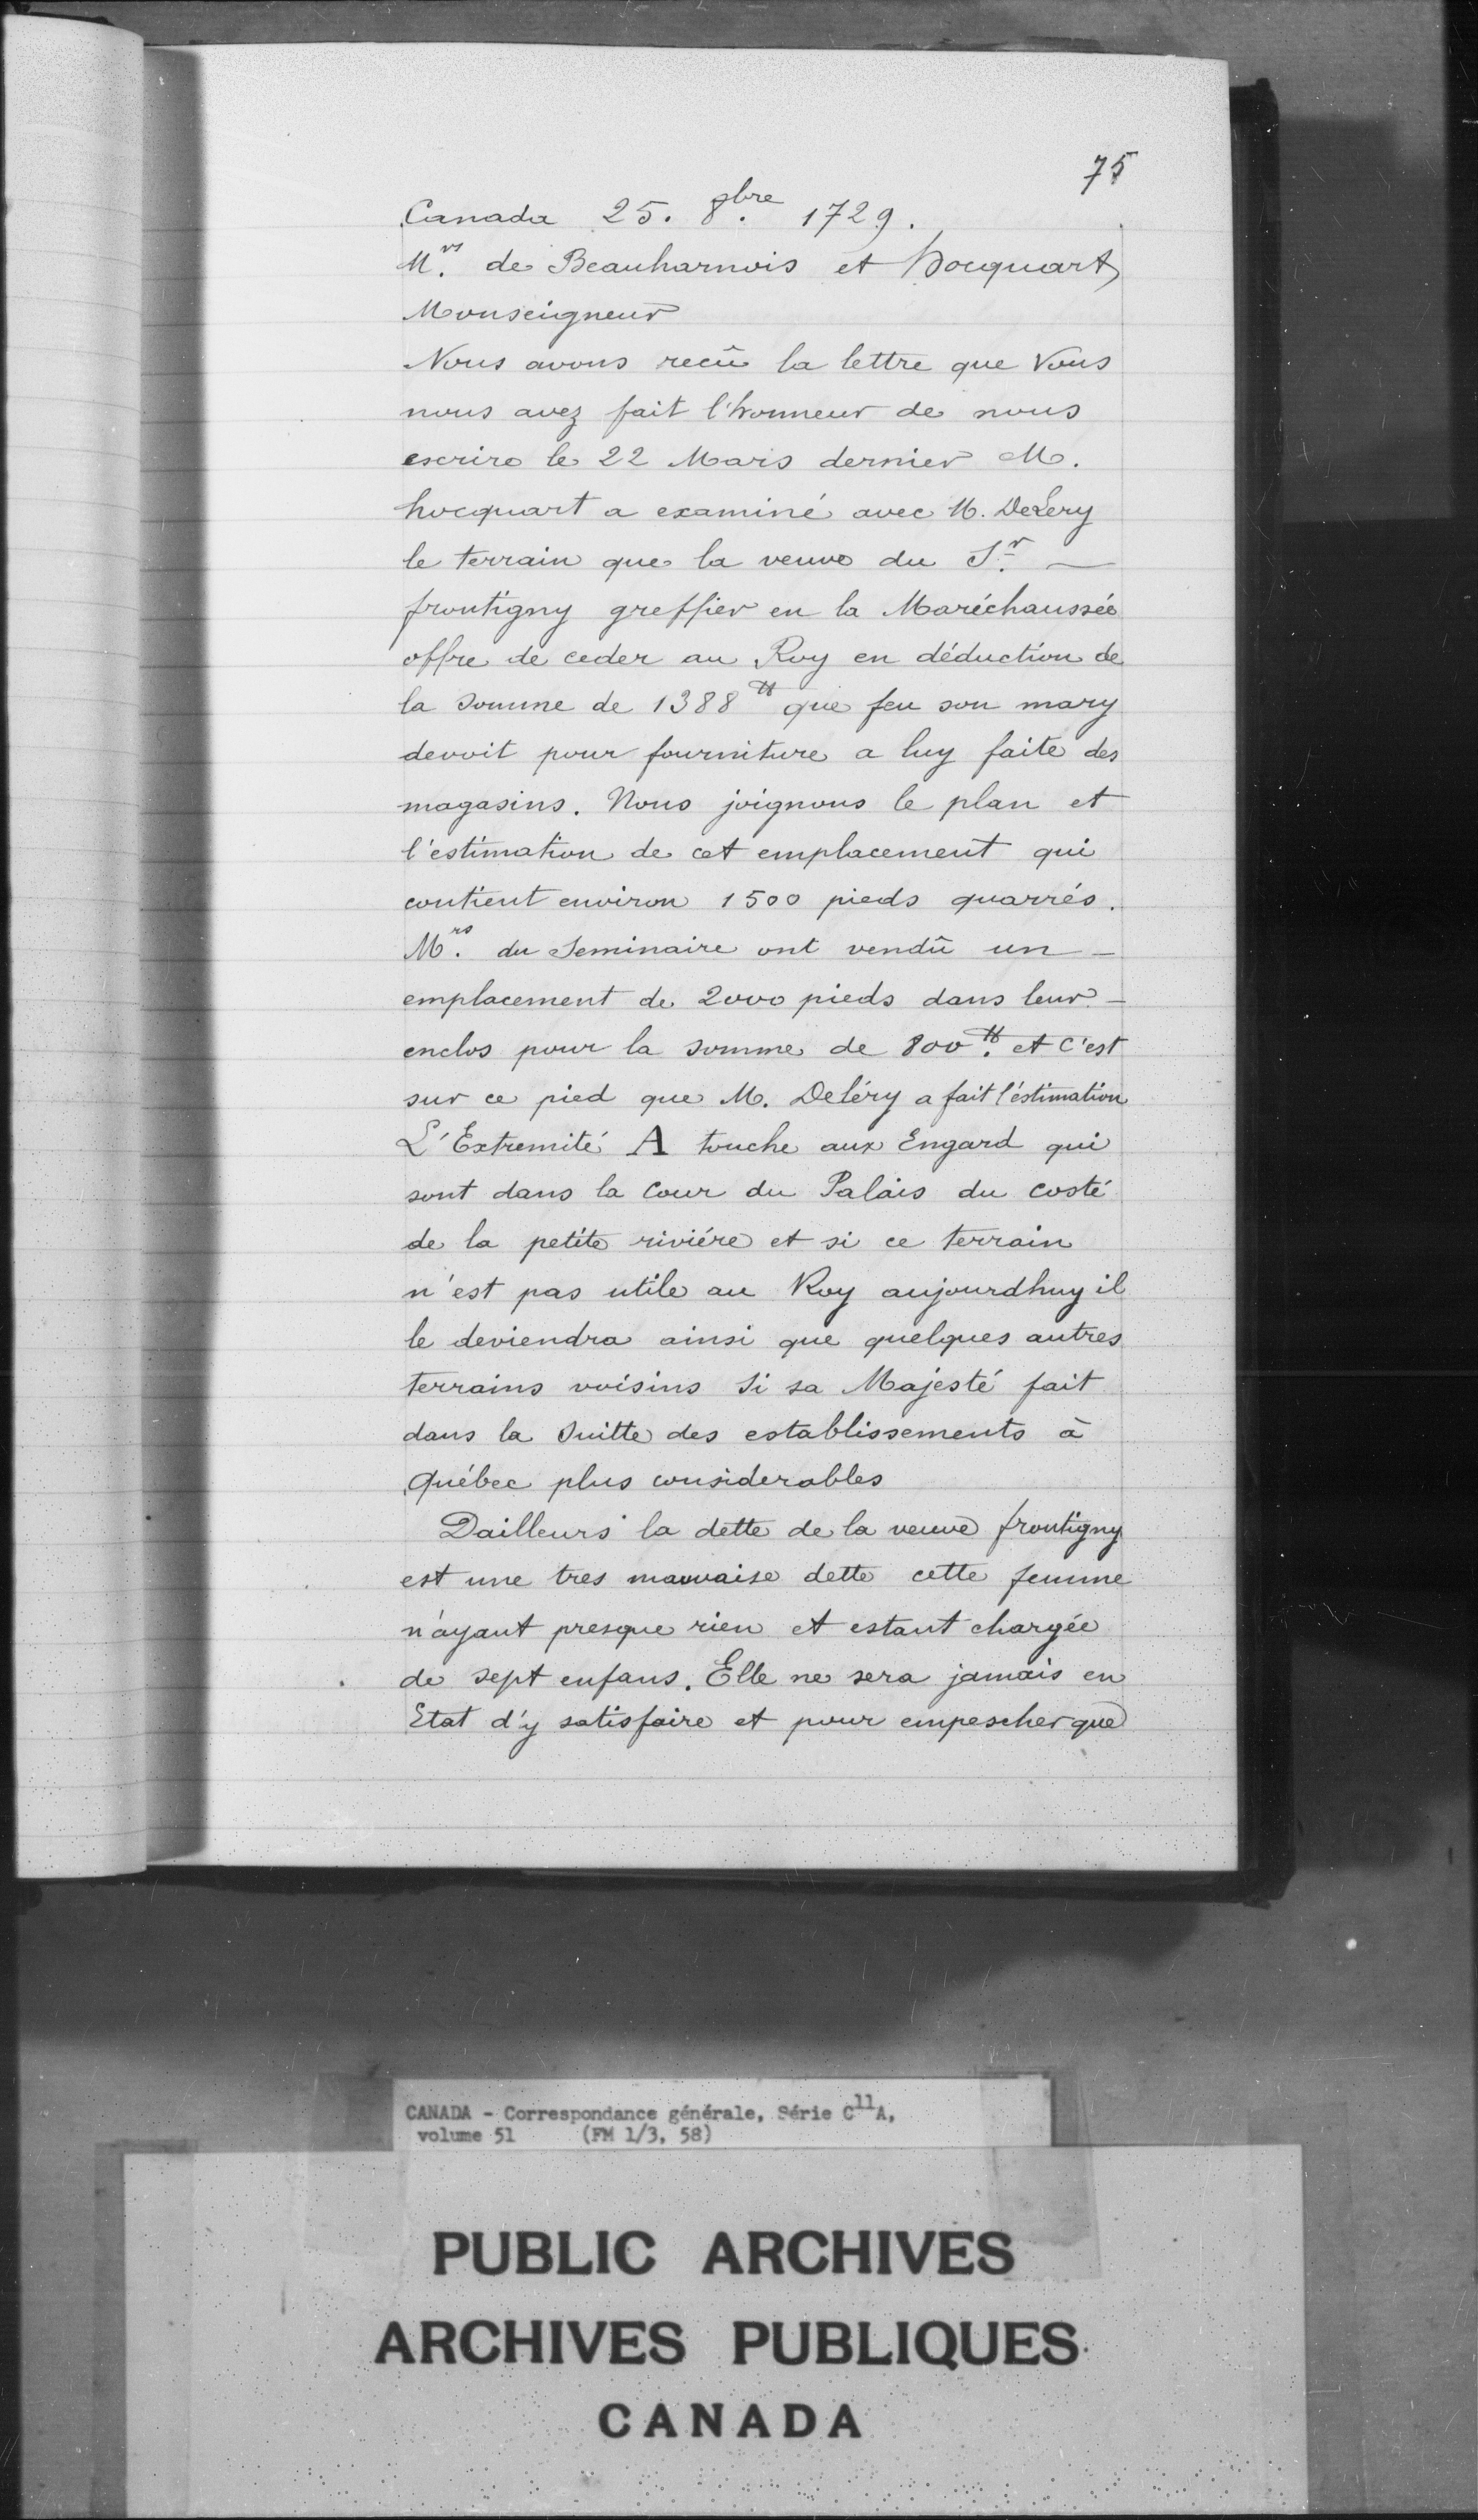 75
Canada 25. 8.bre 1729.
M.rs de Beauharnois et hocquart
Monseigneur
Nous avons reçû la lettre que Vous
nous avez fait l'honneur de nous
escrire le 22 Mars dernier M.
hocquart a examiné avec M. DeLery
le terrain que la veuve du S.r —
frontigny greffier en la Maréchaussée
offre de ceder au Roy en déduction de
la somme de 1388 ₶ que feu son mary
devoit pour fourniture a luy faite des
magasins. Nous joignons le plan et
l'estimation de cet emplacement qui
contient environ 1500 pieds quarrés.
M.rs du Seminaire ont vendû un —
emplacement de 2000 pieds dans leur —
enclos pour la somme de 800 ₶. et c'est
sur ce pied que M. Deléry a fait l'éstimation
L'Extremité A touche aux Engard qui
sont dans la Cour du Palais du costé
de la petite riviére et si ce terrain
n'est pas utile au Roy aujourdhuy il
le deviendra ainsi que quelques autres
terrains voisins Si sa Majesté fait
dans la Suitte des establissements à
Québec plus considerables
Dailleurs la dette de la veuve frontigny
est une tres mauvaise dette cette femme
n'ayant presque rien et estant chargée
de sept enfans. Elle ne sera jamais en
Etat d'y satisfaire et pour empescher que
CANADA - Correspondance générale, Série C11A,
volume 51 (FM 1/3, 58)
PUBLIC ARCHIVES
ARCHIVES PUBLIQUES
CANADA